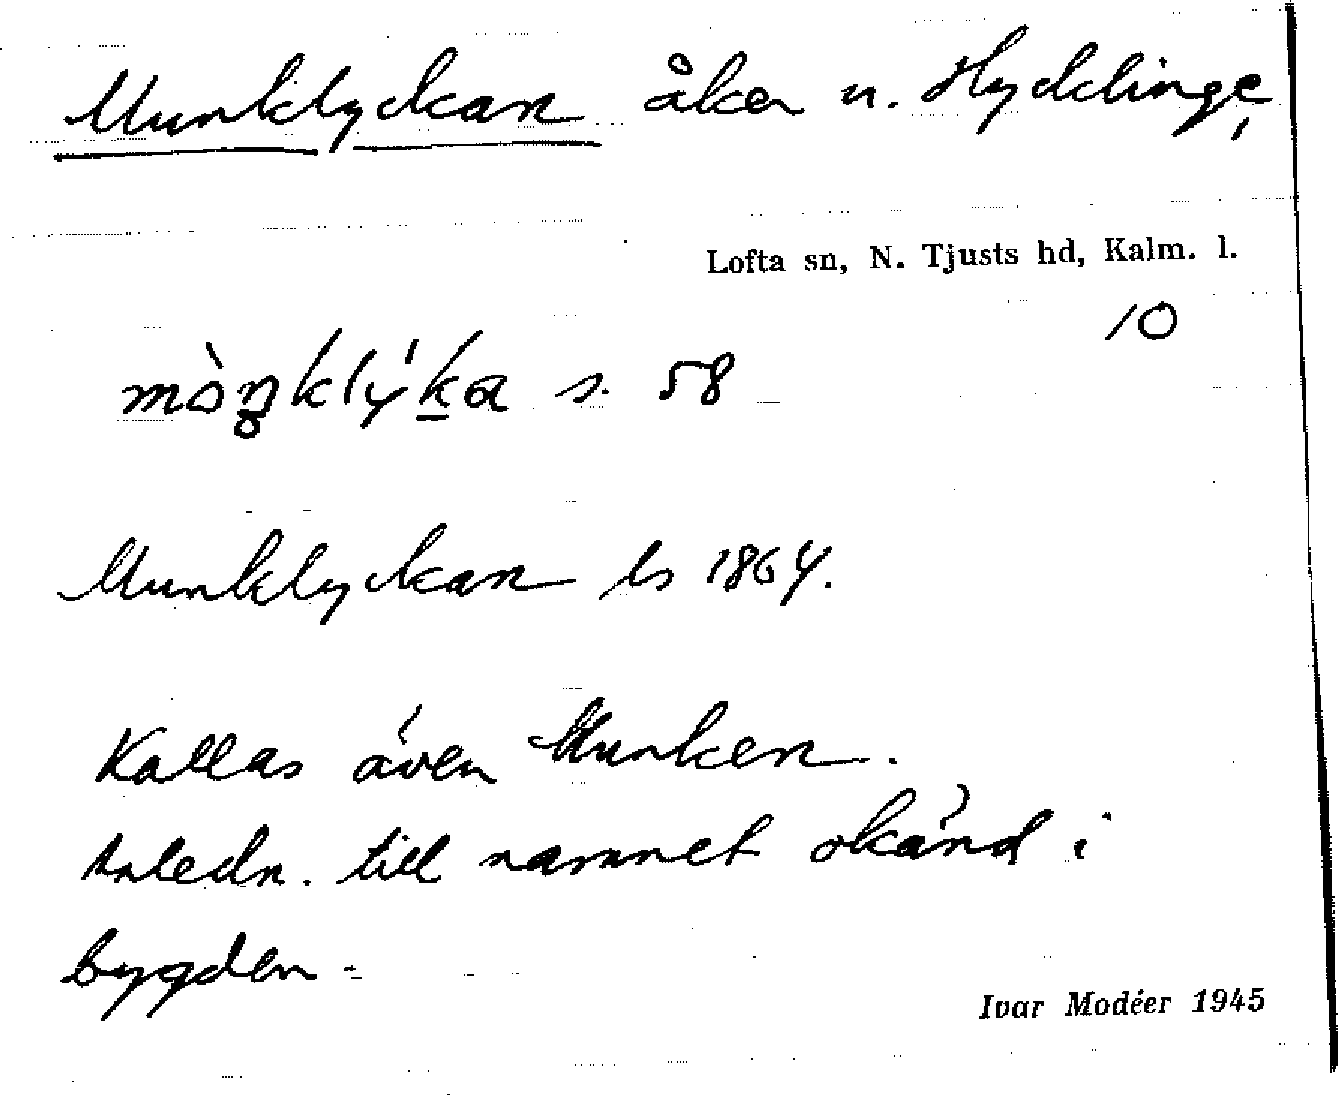 Munklyckan åker u. Hycklinge,
Lofta sn, N. Tjusts hd, Kalm. l.
10
mòŋklýka s. 58
Munklyckan ls 1864.
Kallas även Munken.
Anledn. till namnet okänd i
bygden.
Ivar Modéer 1945